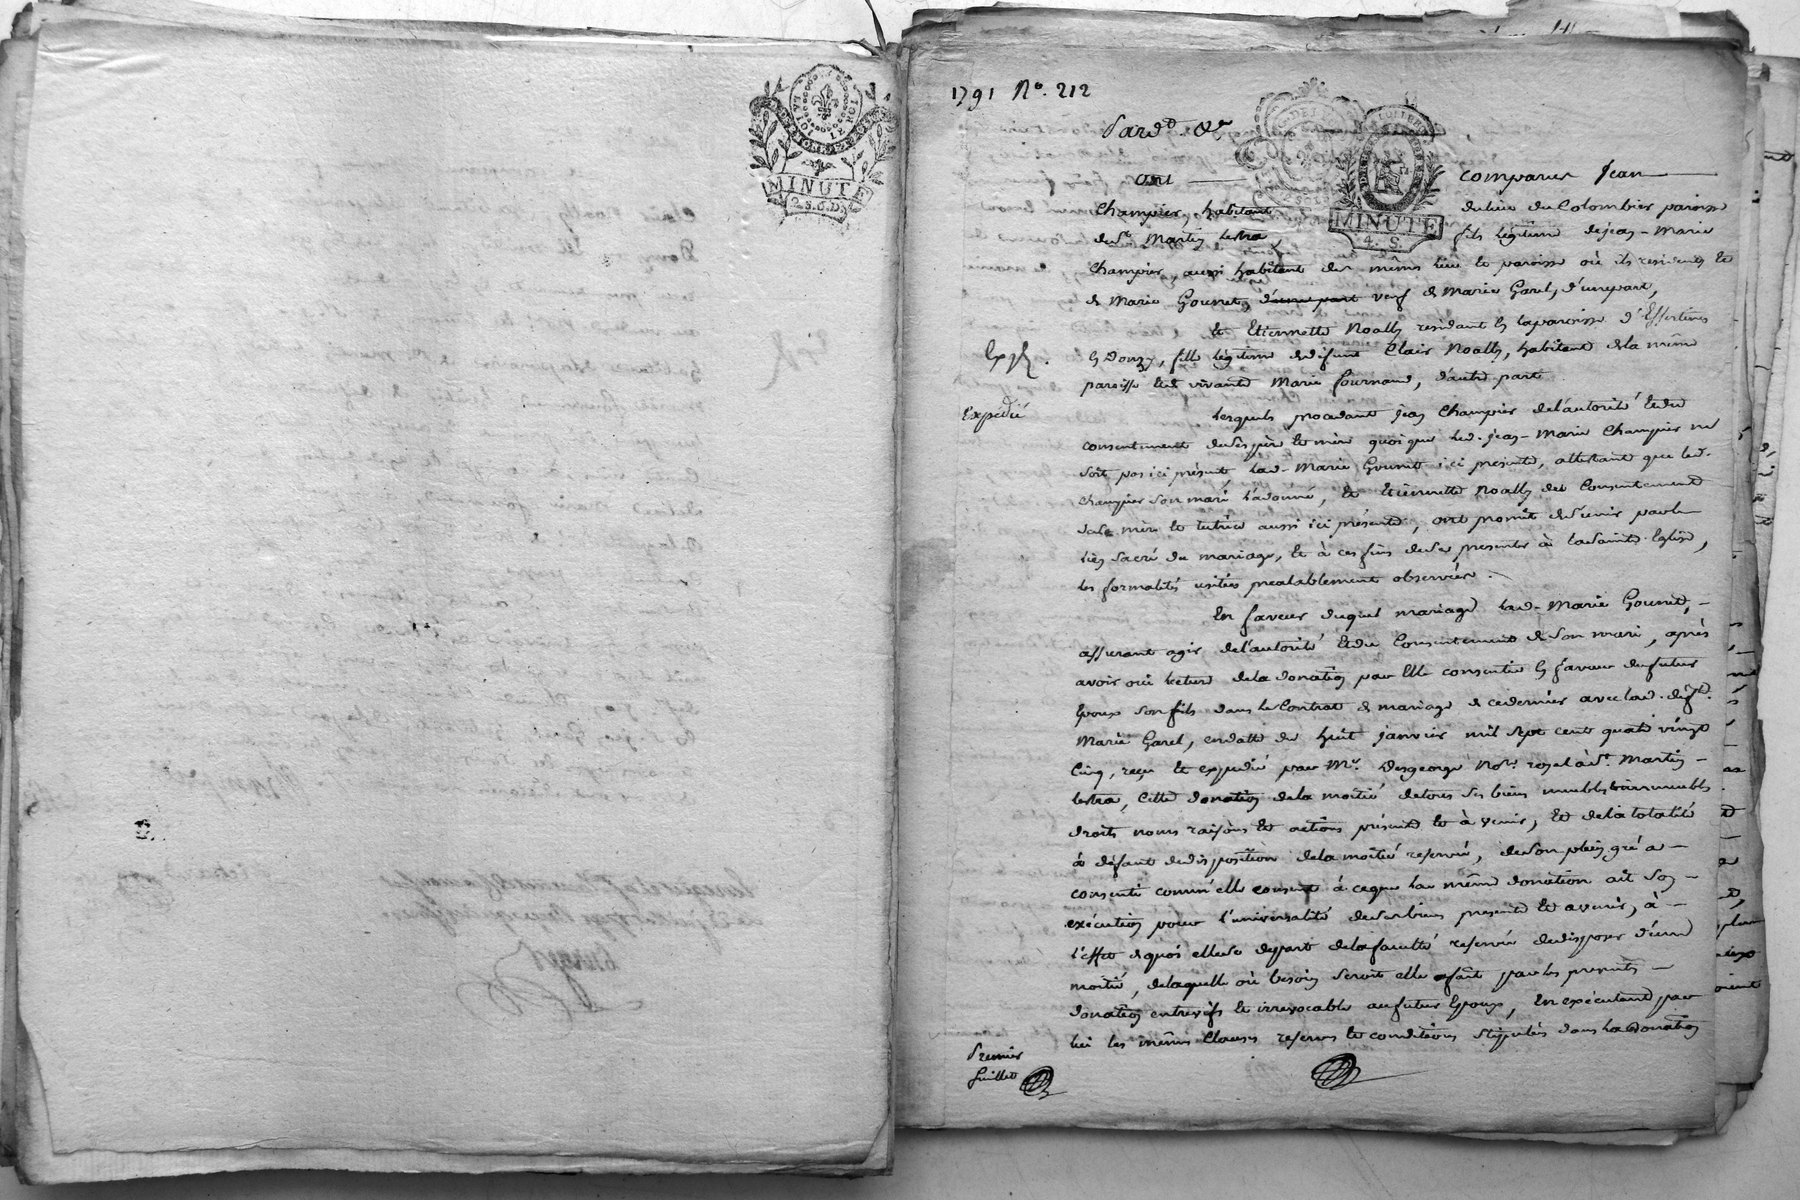 LA LOI ET LE ROI
MINUTE
2 S. 6 D.
1791 No. 212
Pard.t &c
ont comparus Jean
Champier, habitant du lieu du Colombier paroisse
de St. Martin Lestra, fils légitime de jean-Marie
Champier, aussi habitant du même lieu et paroisse où ils resident et
de Marie Gounet, d'une part veuf de Marie Garel, d'unepart,
Et Etiennette Noally residant en la paroisse d'Essertines
en Donzy, fille légitime de défunt Clair Noally, habitant de la même
paroisse et de vivante Marie fournand, d'autre part
Expédié
Lesquels procedant jean Champier de l'autorité et du
consentement de ses père et mère quoique led. jean-Marie Champier ne
soit pas ici présent, lad. Marie Gounet ici presente, attestant que led.
champier son mari l'a donné, et Etiennette Noally du Consentement
de sa mère et tutrice aussi ici présente, ont promit de s'unir par le
lien sacré du mariage, et à ces fins de se presenter à la Sainte Eglise,
les formalités usitées prealablement observées.
En faveur duquel mariage lad. Marie Gounet,
assurant agir de l'autorité et du Consentement de son mari, après
avoir oui lecture de la donation par Elle consentie en faveur du futur
Epoux son fils dans le Contrat de mariage de ce dernier avec lad. défte.
Marie Garel, en datte du huit janvier mil sept cent quatre vingt
Cinq, reçu et expedié par Me. Desgeorge Nore. royal à St. Martin
Lestra, Cette donation de la moitié de tous ses biens meubles & immeubles
droits noms raisons et actions présents et à venir, et de la totalité
à défaut de disposition de la moitié reservée, de son plein gré a
consenti comm'elle consent à ce que la même donation ait son
exécution pour l'universalité de ses biens presents et avenir, à
l'effet de quoi elle se départ de la faculté reservée de disposer d'une
moitié, de laquelle où besoin seroit elle fait par les presentes
donation entrevifs et irrevocable au futur Epoux, En exécutant par
lui les mêmes Clauses reserves et conditions stipulées dans la donation
Premier
feuillet
MINUTE
4. S.